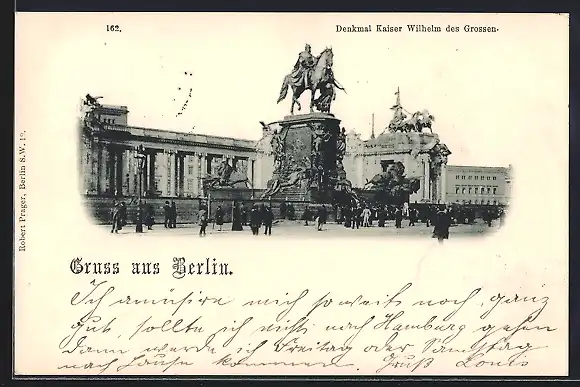 162.
Denkmal Kaiser Wilhelm des Grossen.
Robert Prager, Berlin S.W. 19.
Gruss aus Berlin.
Ich amüsire mich soweit noch, ganz
gut, sollte ich nicht nach Hamburg gehen
dann werde ich Freitag oder Samstag
nach Hause kommen. Gruß Louis